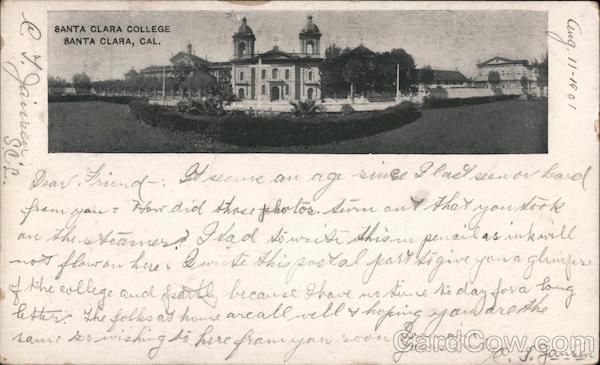 SANTA CLARA COLLEGE
SANTA CLARA, CAL.
Aug. 11-1901
C J Jansen
S.C.C.
Dear Friend-: It seems an age since I last seen or heard
from you. How did those photos turn out that you took
on the steamer? I had to write this in pencil as ink will
not flow on here. I write this postal part to give you a glimpse
of the college and partly because I have no time to day for a long
letter. The folks at home are all well & hoping you are the
same & wishing to here from you soon
C. J. Jansen
CardCow.com